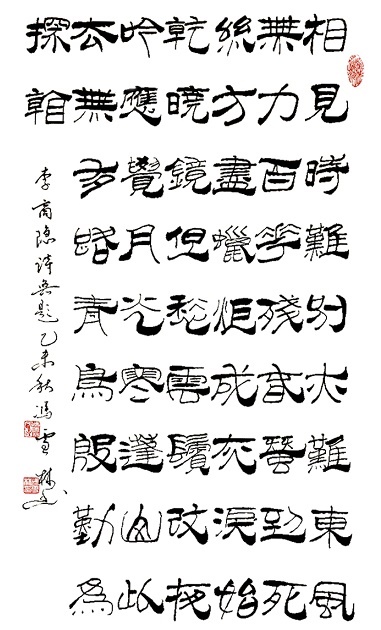 相見時難別亦難東風
無力百花殘春蠶到死
絲方盡蠟炬成灰淚始
乾曉鏡但愁雲鬢改夜
吟應覺月光寒蓬山此
去無多路青鳥殷勤為
探看
李商隐詩無題乙未秋馮雪书